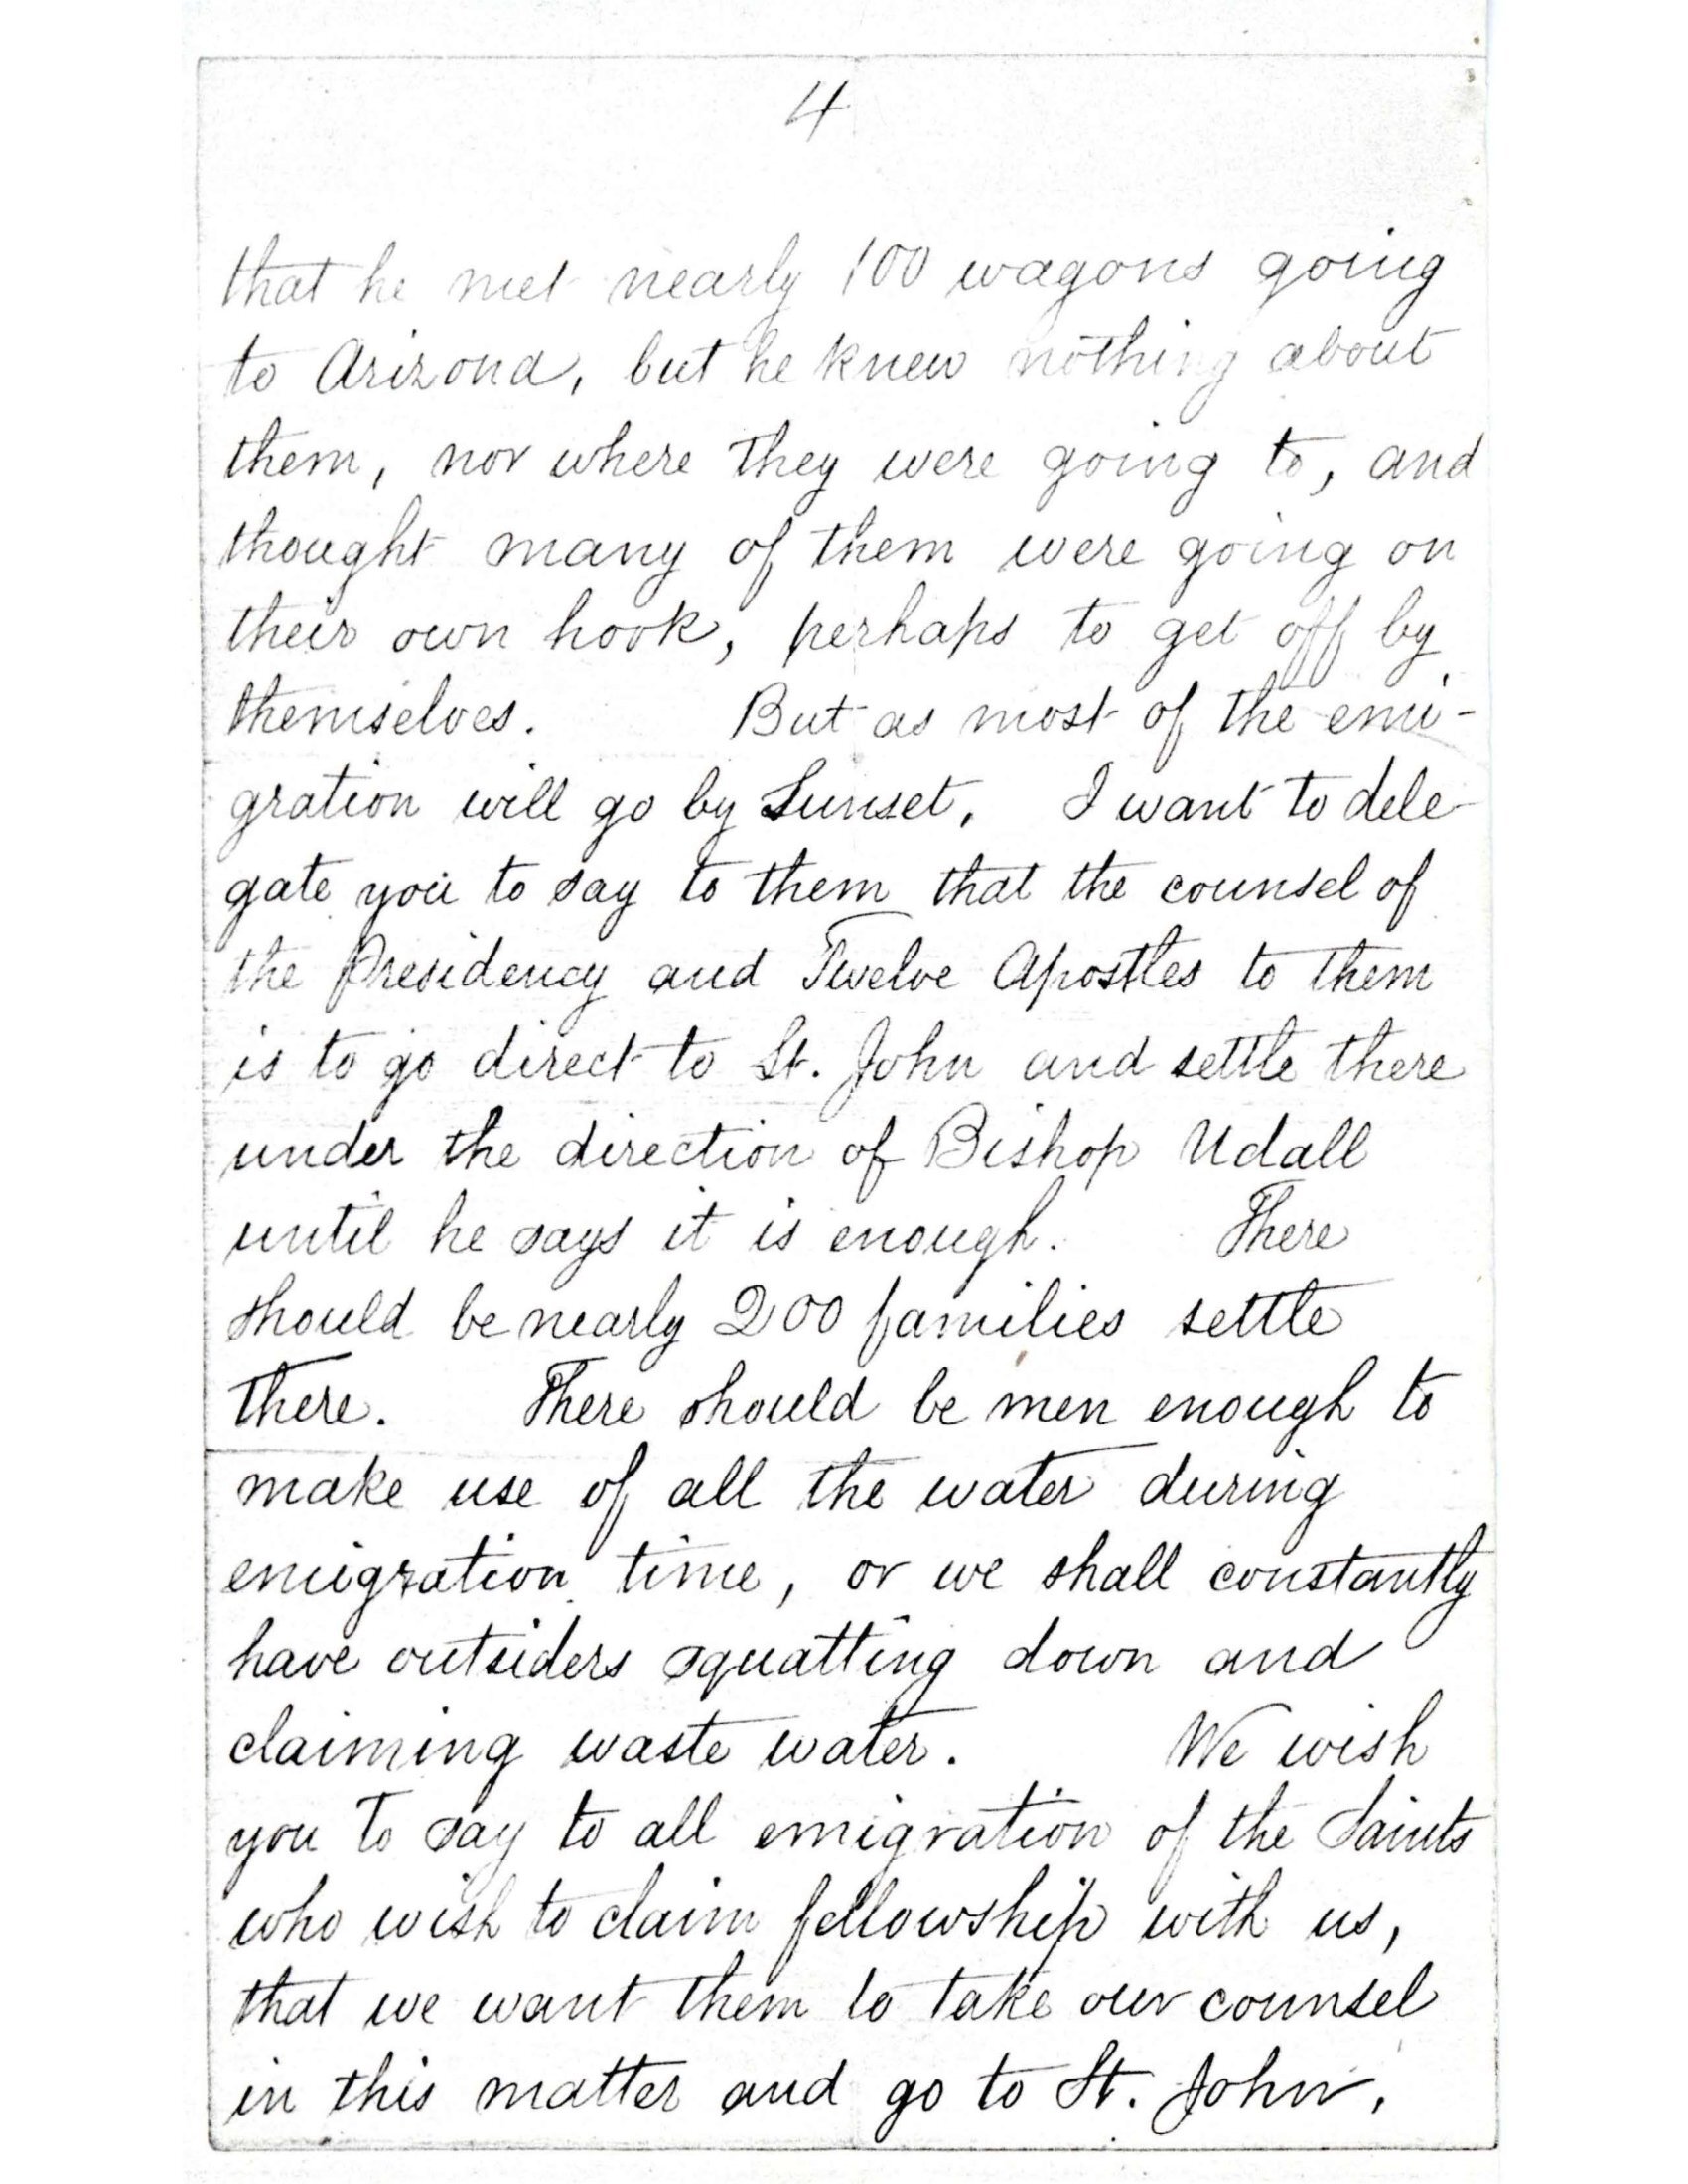 4
that he met nearly 100 wagons going
to Arizona, but he knew nothing about
them, nor where they were going to, and
thought many of them were going on
their own hook, perhaps to get off by
themselves. But as most of the emi-
gration will go by Sunset, I want to dele-
gate you to say to them that the counsel of
the Presidency and Twelve Apostles to them
is to go direct to St. John and settle there
under the direction of Bishop Udall
until he says it is enough. There
should be nearly 200 families settle
there. There should be men enough to
make use of all the water during
emigration time, or we shall constantly
have outsiders squatting down and
claiming waste water. We wish
you to say to all emigration of the Saints
who wish to claim fellowship with us,
that we want them to take our counsel
in this matter and go to St. John,